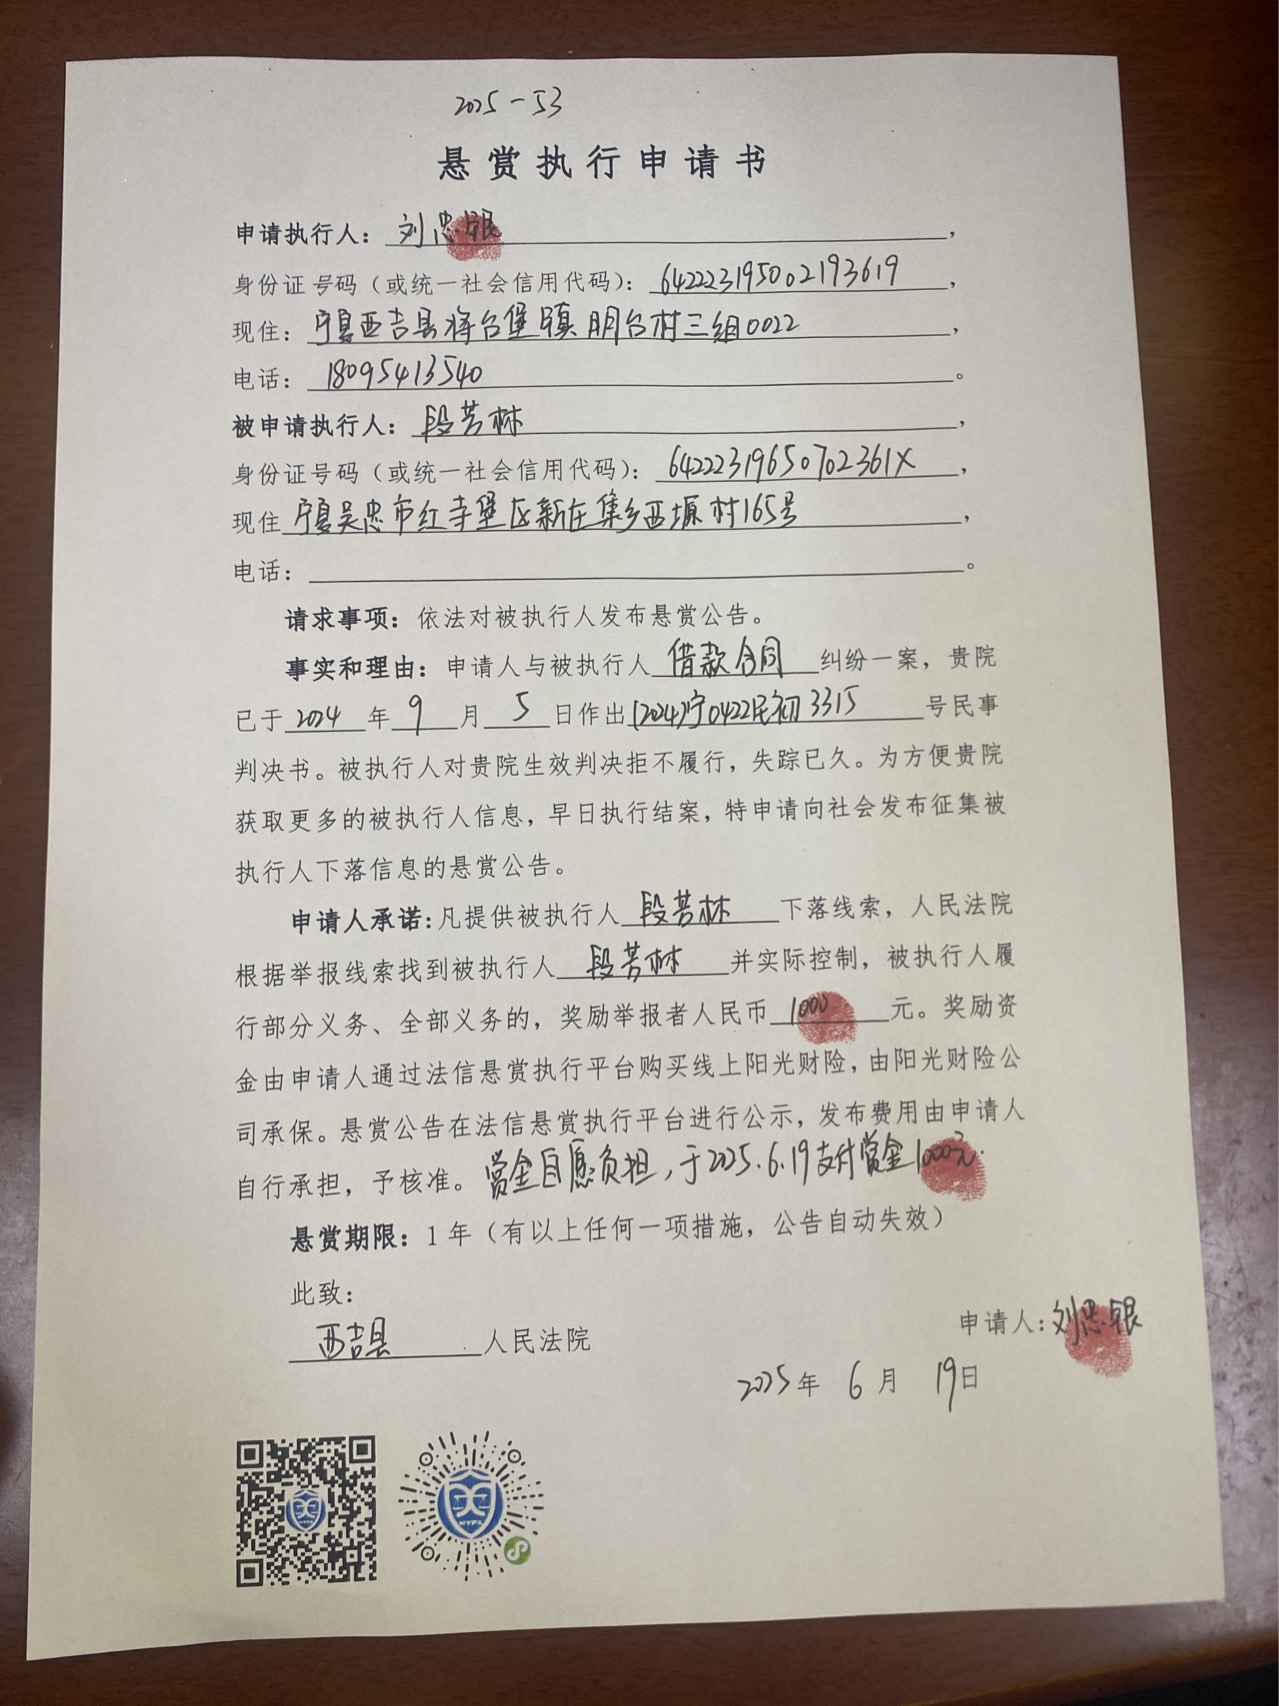 2025-53
悬赏执行申请书
申请执行人：刘忠银，
身份证号码（或统一社会信用代码）：642223195002193619，
现住：宁夏西吉县将台堡镇明台村三组0022，
电话：18095413540。
被申请执行人：段芳林，
身份证号码（或统一社会信用代码）：64222319650702361X，
现住宁夏吴忠市红寺堡区新庄集乡西塬村165号，
电话：。
请求事项：依法对被执行人发布悬赏公告。
事实和理由：申请人与被执行人借款合同纠纷一案，贵院
已于2024年9月5日作出(2024)宁0422民初3315号民事
判决书。被执行人对贵院生效判决拒不履行，失踪已久。为方便贵院
获取更多的被执行人信息，早日执行结案，特申请向社会发布征集被
执行人下落信息的悬赏公告。
申请人承诺：凡提供被执行人段芳林下落线索，人民法院
根据举报线索找到被执行人段芳林并实际控制，被执行人履
行部分义务、全部义务的，奖励举报者人民币1000元。奖励资
金由申请人通过法信悬赏执行平台购买线上阳光财险，由阳光财险公
司承保。悬赏公告在法信悬赏执行平台进行公示，发布费用由申请人
自行承担，予核准。赏金自愿负担，于2025.6.19支付赏金1000元.
悬赏期限：1年（有以上任何一项措施，公告自动失效）
此致：
西吉县人民法院
申请人：刘忠银
2025年6月19日